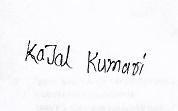 KaJal Kumari